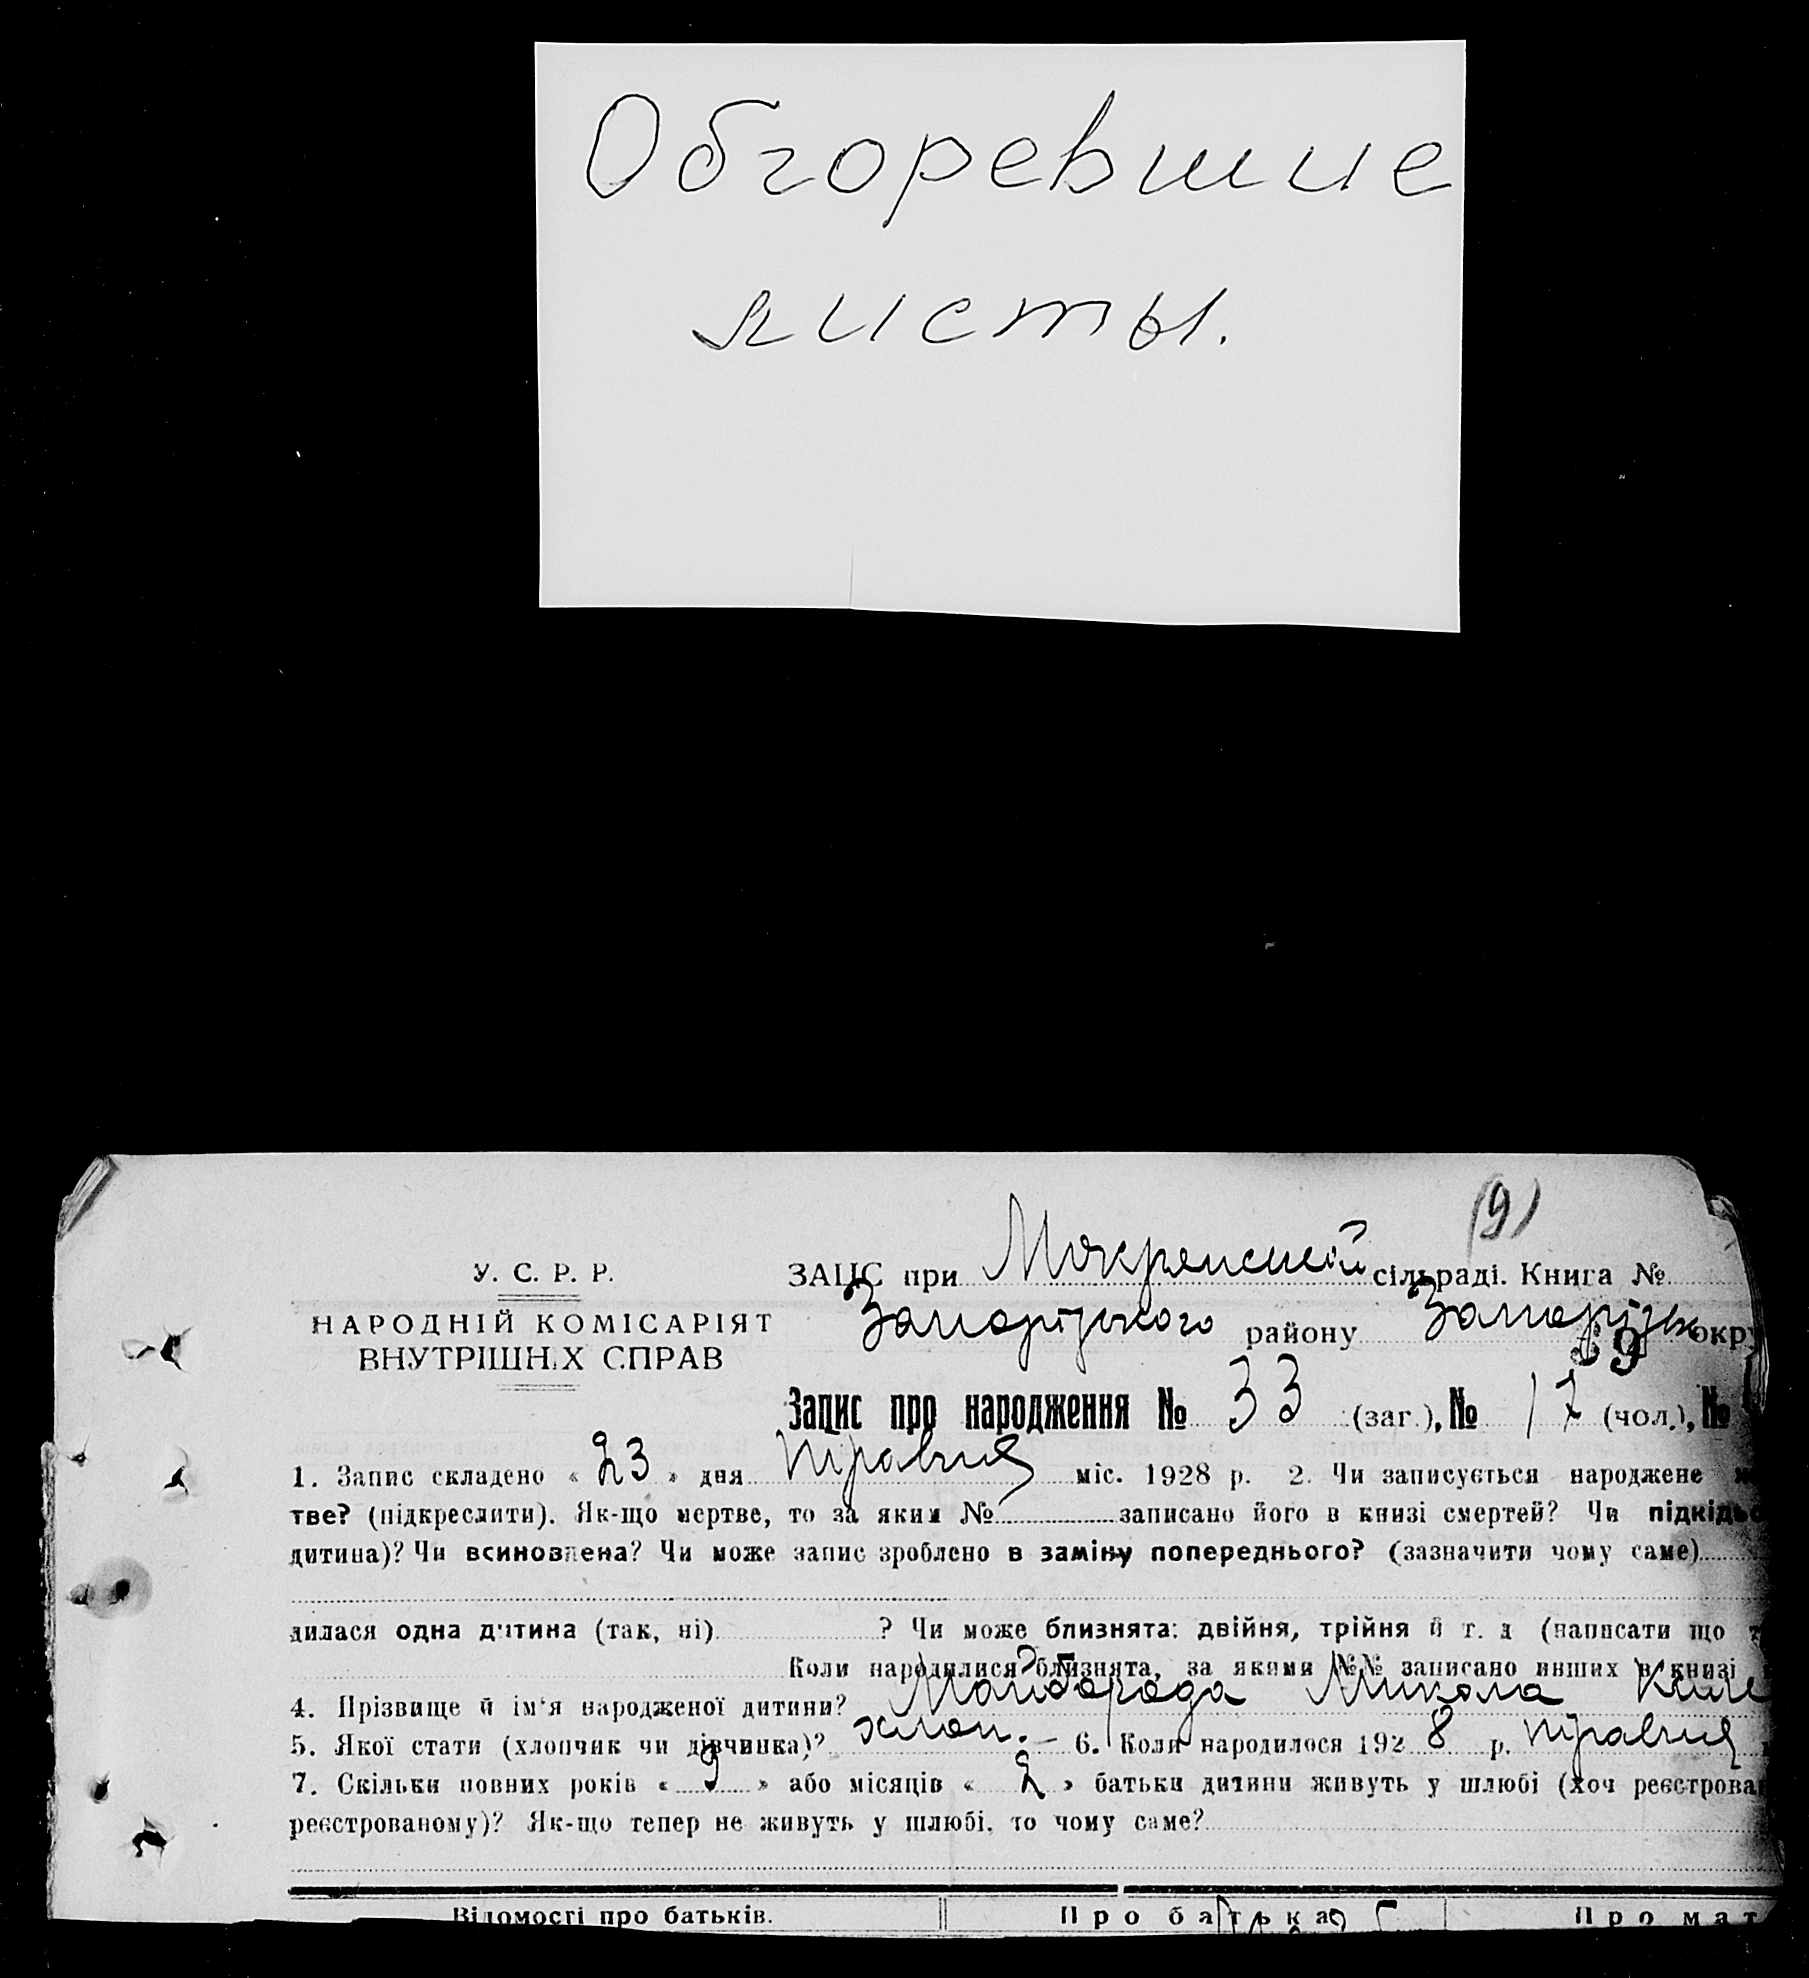 Обгоревшие
листы.
(9)
У. С. Р. Р.
НАРОДНІЙ КОМІСАРІЯТ
ВНУТРІШНІХ СПРАВ
ЗАЦС при Мокрянській сільраді. Книга №
Запорізького району Запорізьк окр
39
Запис про народження № 33 (заг.), № 17 (чол.), №
1. Запис складено « 23 » дня травня міс. 1928 р. 2. Чи записується народжене
тве? (підкреслити). Як-що мертве, то за яким № записано його в книзі смертей? Чи підкідьо
дитина)? Чи всиновлена? Чи може запис зроблено в заміну попереднього? (зазначити чому саме)
дилася одна дитина (так, ні) ? Чи може близнята: двійня, трійня й т. д (написати що
Коли народилися близнята, за якими №№ записано инших в книзі
4. Прізвище й ім'я народженої дитини? Майборода Микола
5. Якої стати (хлопчик чи дівчинка)? хлоп. — 6. Коли народилося 1928 р. травня
7. Скільки повних років « 9 » або місяців « 2 » батьки дитини живуть у шлюбі (хоч реєстрова
реєстрованому)? Як-що тепер не живуть у шлюбі, то чому саме?
Відомості про батьків. Про батька Про мат